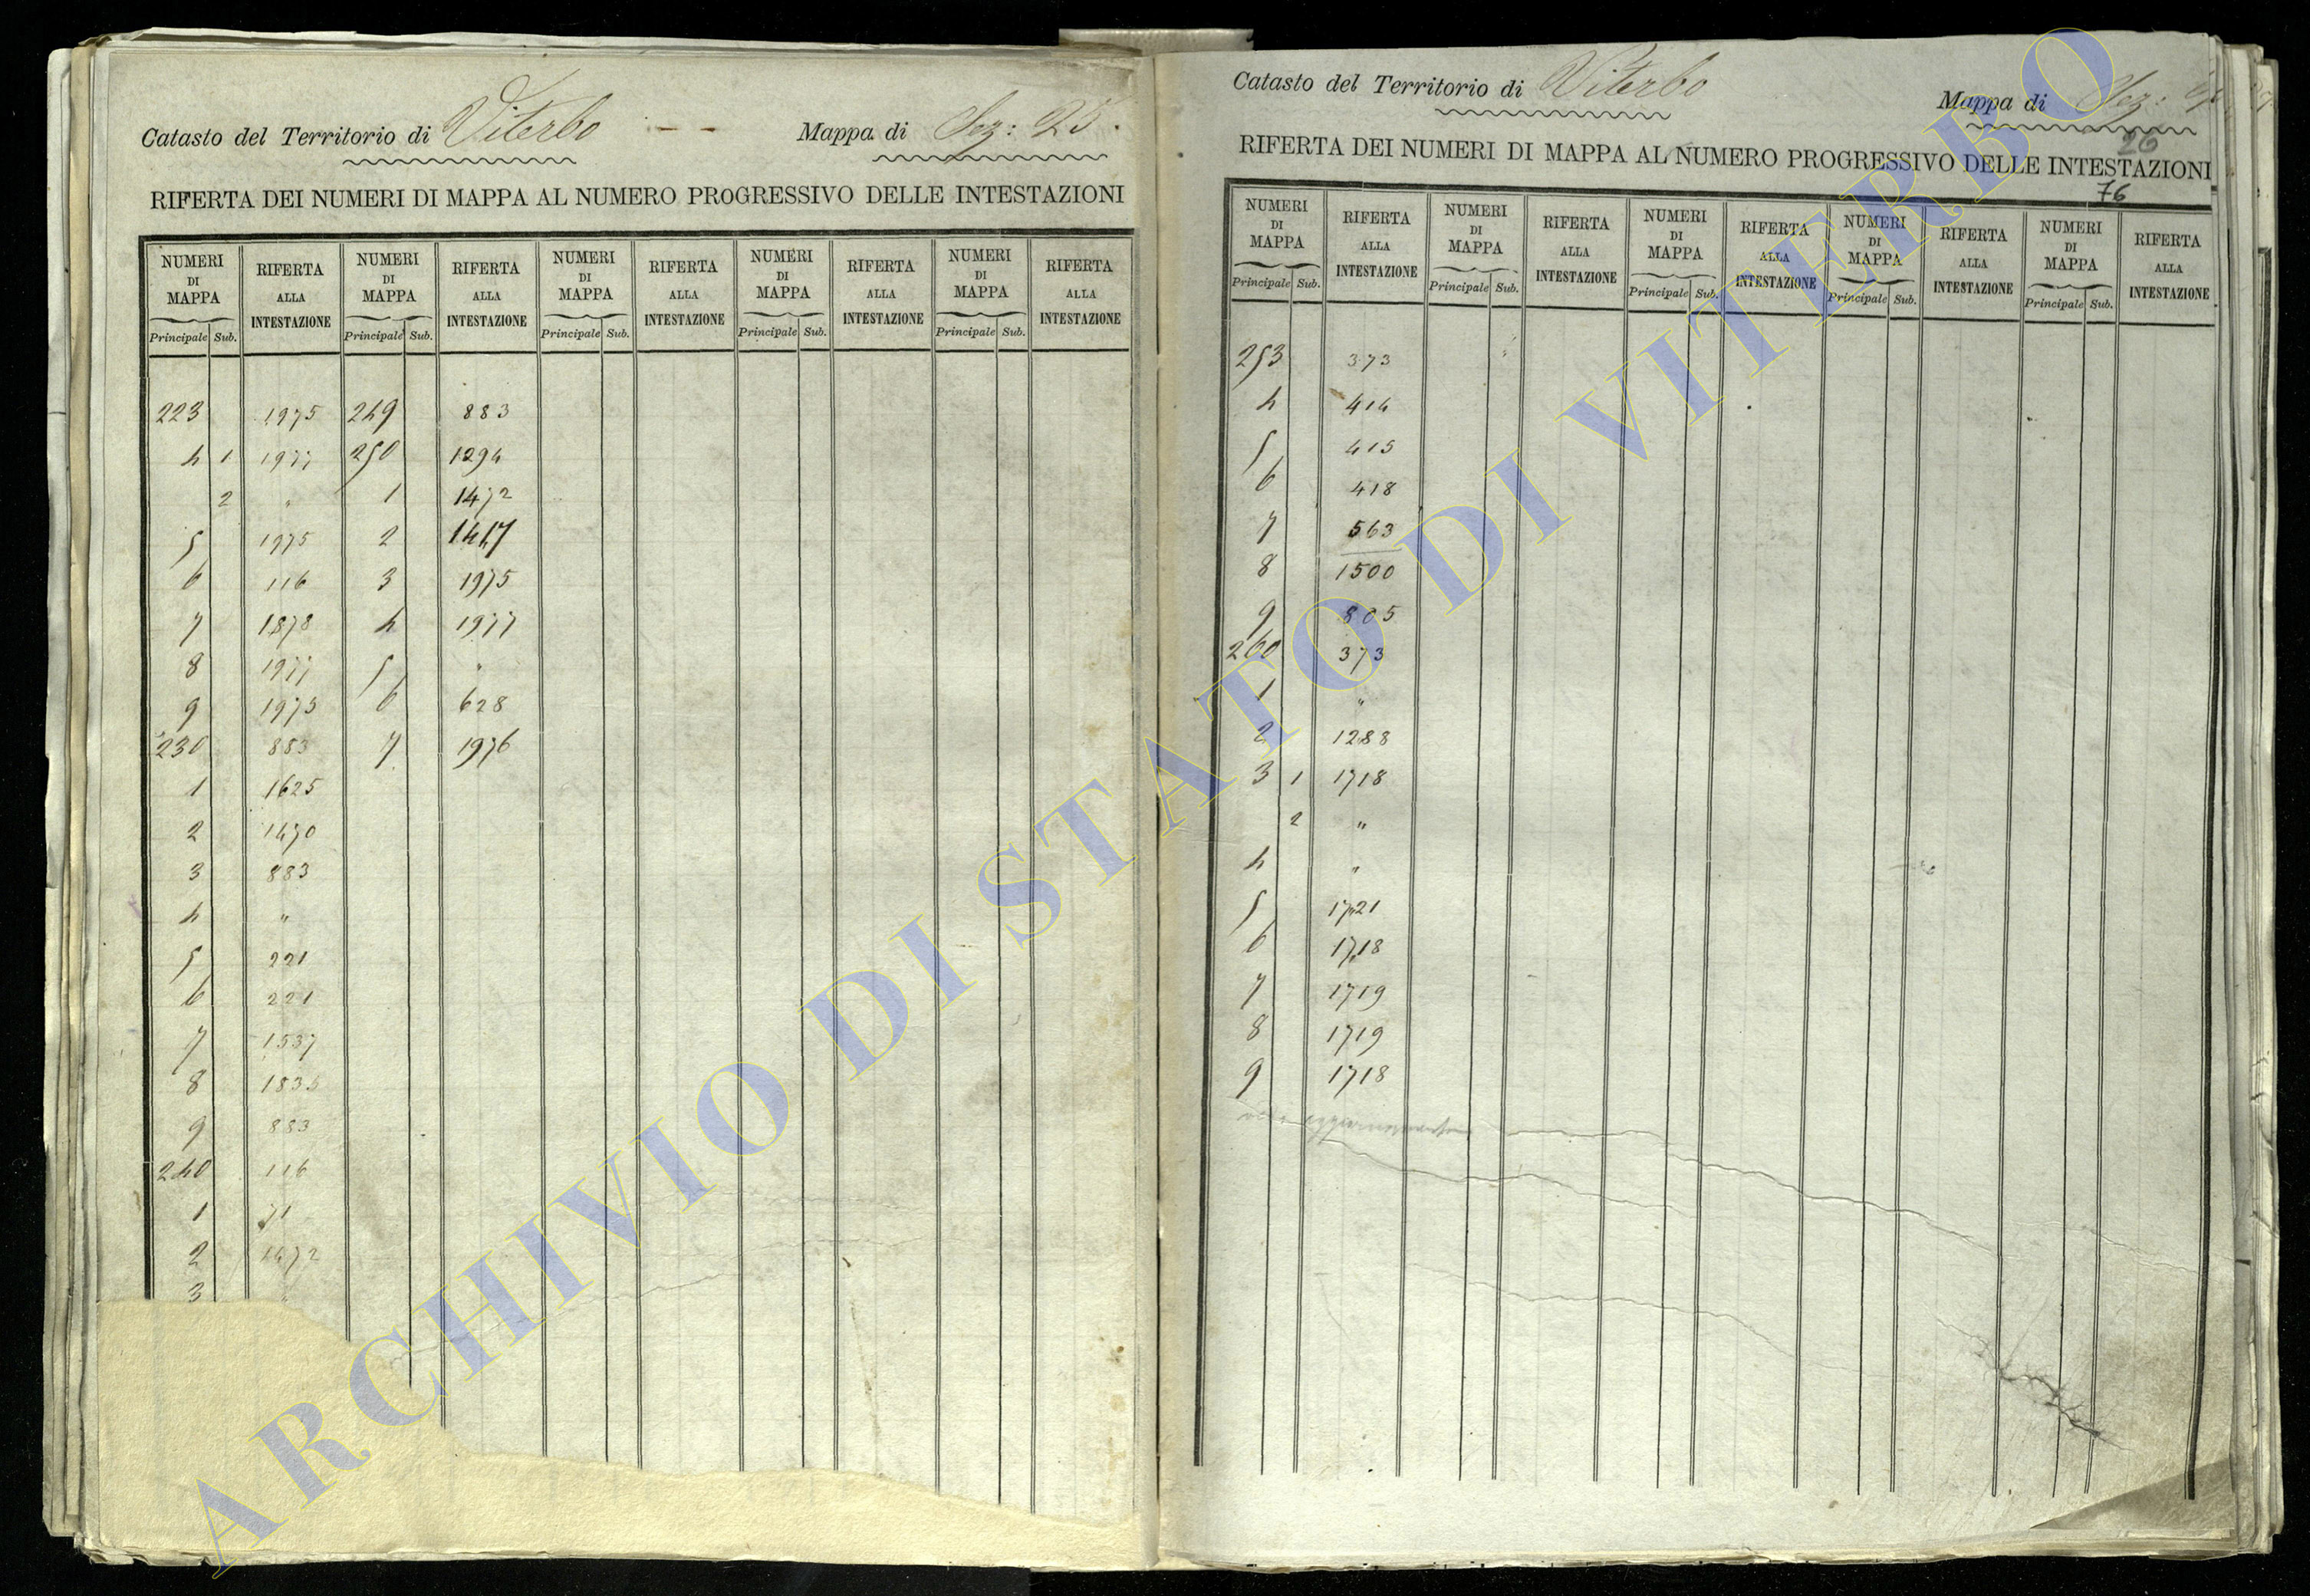 Catasto del Territorio di Viterbo Mappa di Sez: 25.
RIFERTA DEI NUMERI DI MAPPA AL NUMERO PROGRESSIVO DELLE INTESTAZIONI
NUMERI DI MAPPA RIFERTA ALLA INTESTAZIONE NUMERI DI MAPPA RIFERTA ALLA INTESTAZIONE NUMERI DI MAPPA RIFERTA ALLA INTESTAZIONE NUMERI DI MAPPA RIFERTA ALLA INTESTAZIONE NUMERI DI MAPPA RIFERTA ALLA INTESTAZIONE
Principale Sub. Principale Sub. Principale Sub. Principale Sub. Principale Sub.
223 1975 249 883
4 1 1977 250 1294
2 " 1 1472
5 1975 2 1447
6 116 3 1975
7 1878 4 1977
8 1977 5 "
9 1975 6 628
230 883 7 1976
1 1625
2 1470
3 883
4 "
5 221
6 221
7 1537
8
9 883
240 116
1 71
2 1472
3 "
Catasto del Territorio di Viterbo Mappa di Sez:
26
RIFERTA DEI NUMERI DI MAPPA AL NUMERO PROGRESSIVO DELLE INTESTAZIONI
76
NUMERI DI MAPPA RIFERTA ALLA INTESTAZIONE NUMERI DI MAPPA RIFERTA ALLA INTESTAZIONE NUMERI DI MAPPA RIFERTA ALLA INTESTAZIONE NUMERI DI MAPPA RIFERTA ALLA INTESTAZIONE NUMERI DI MAPPA RIFERTA ALLA INTESTAZIONE
Principale Sub. Principale Sub. Principale Sub. Principale Sub. Principale Sub.
253 373
4 414
5 415
6 418
7 563
8 1500
9 805
260 373
1 "
2 1288
3 1 1718
2 "
4 "
5 1721
6 1718
7 1719
8 1719
9 1718
ARCHIVIO DI STATO DI VITERBO